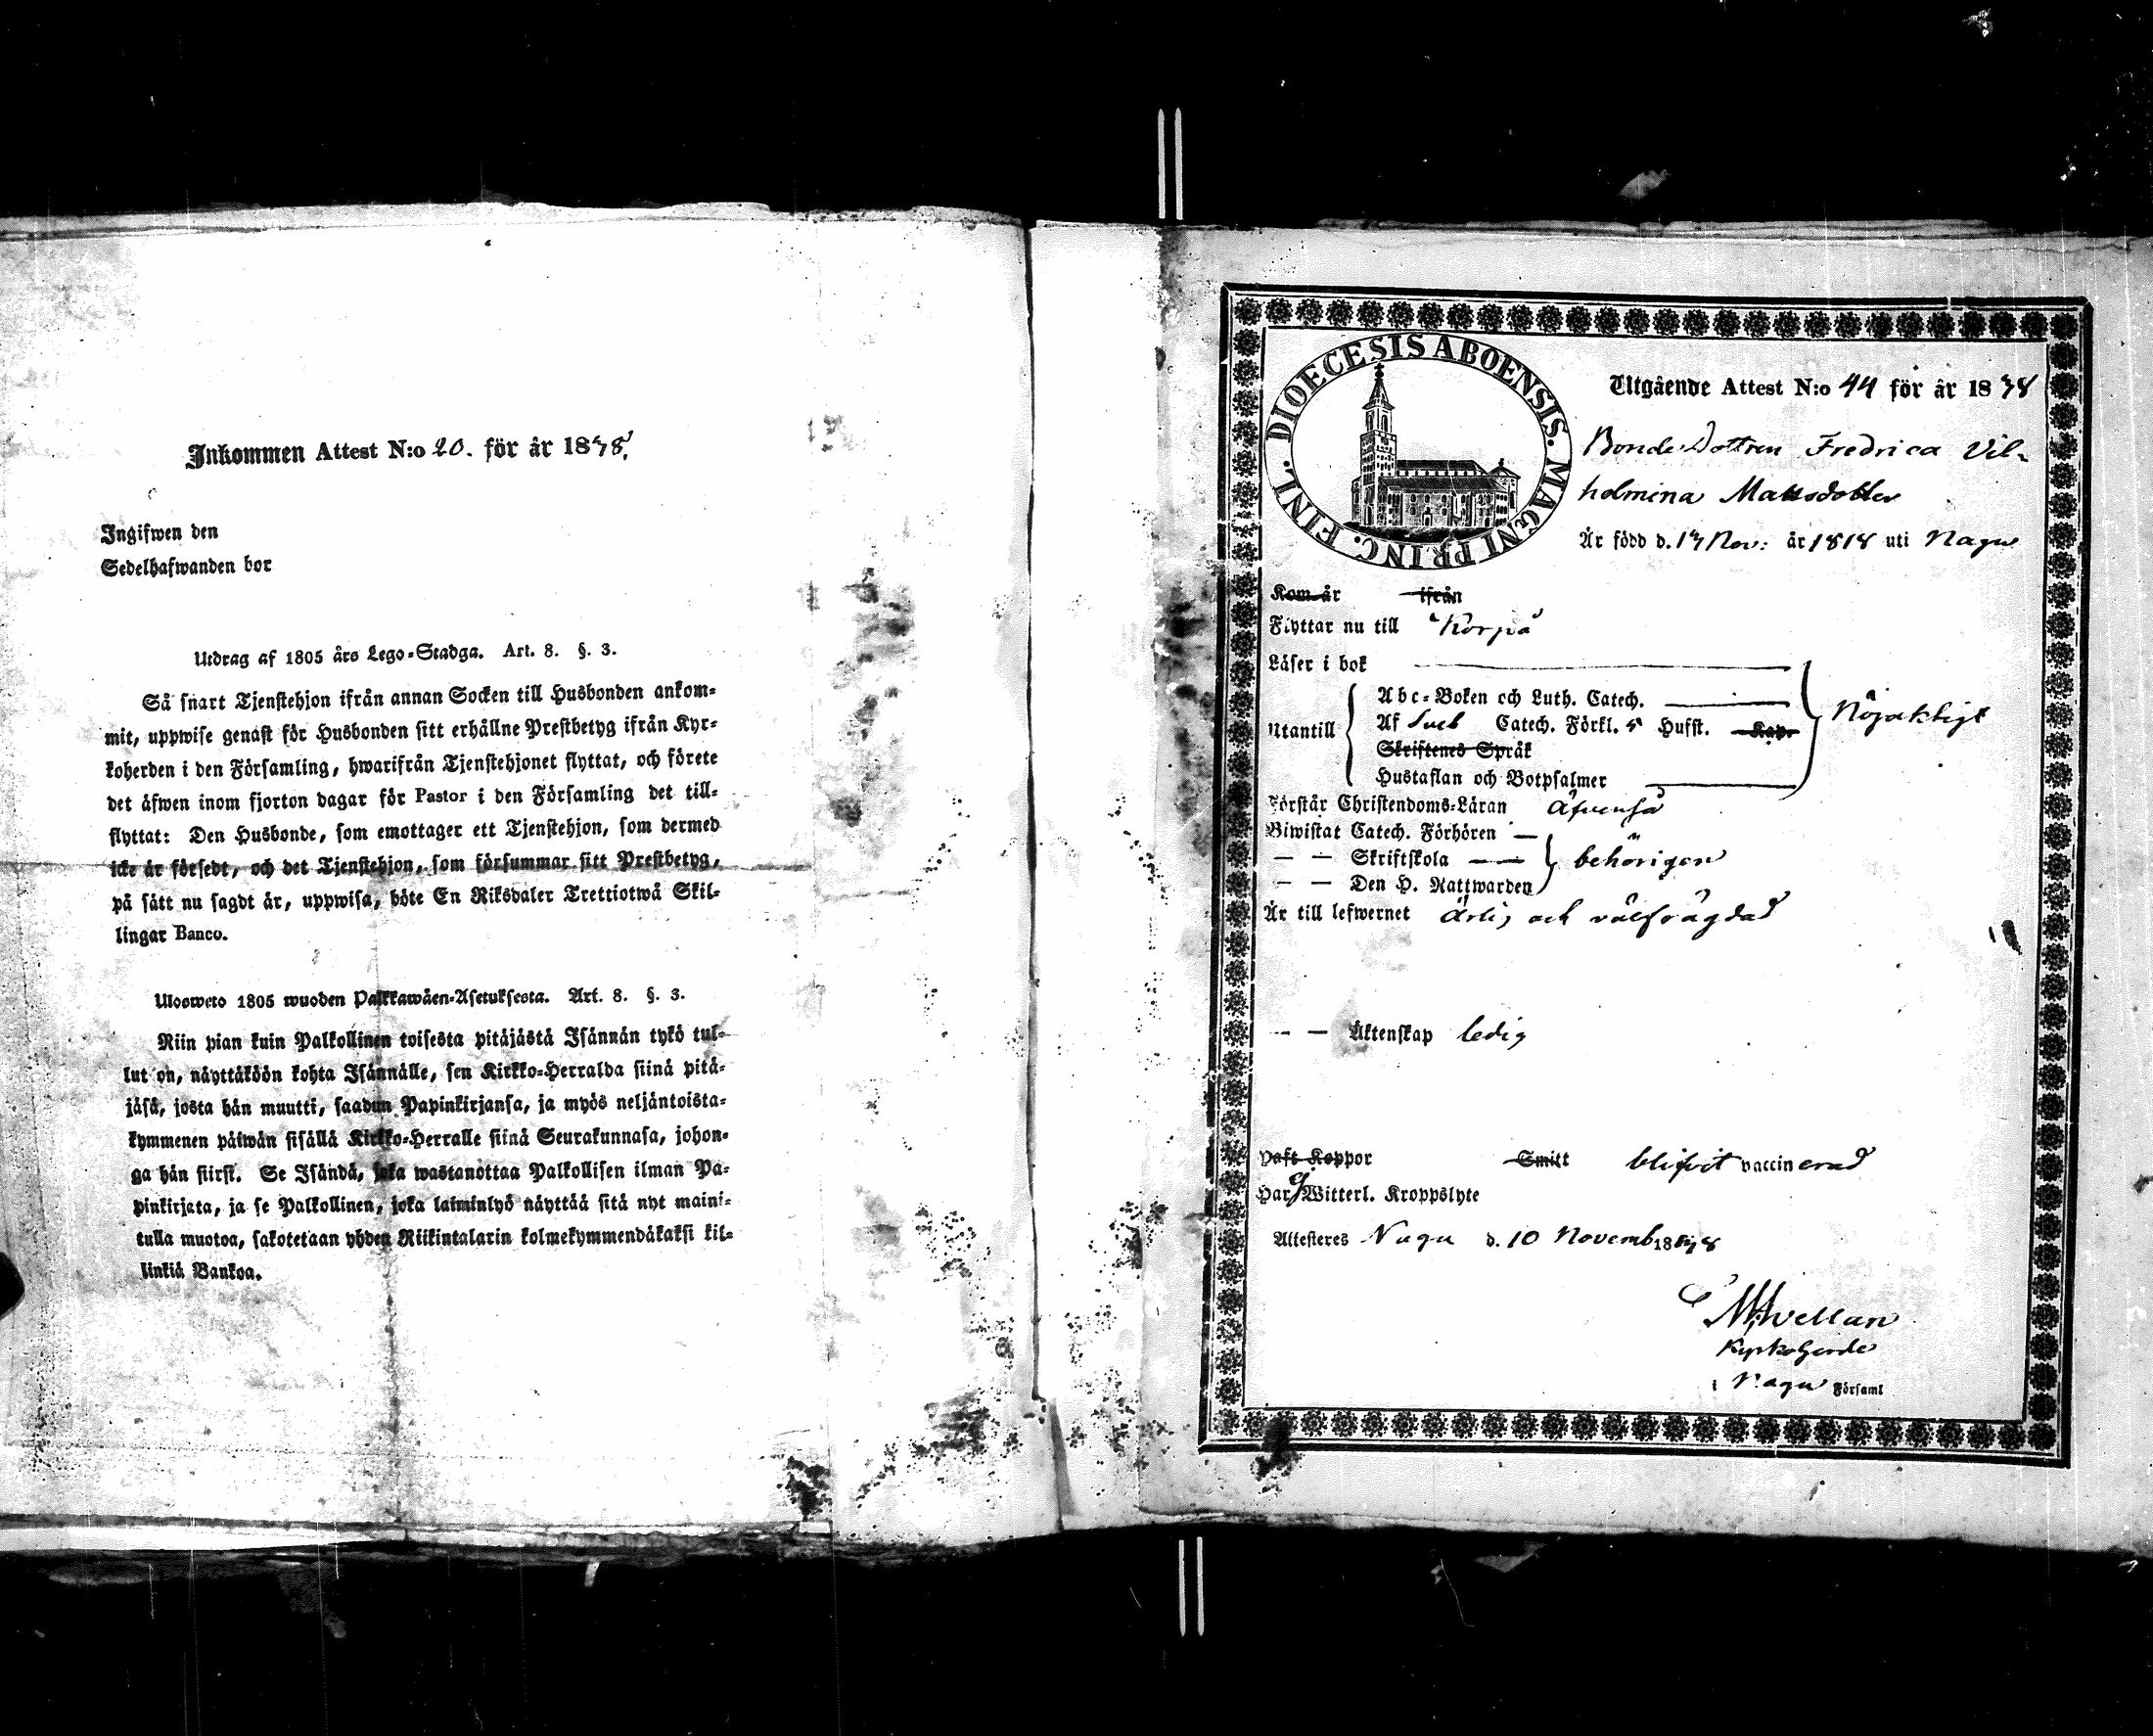 Inkommen Attest N:o 20. för år 1838.
Ingifwen den
Sedelhafwanden bor
Utdrag af 1805 års Lego-Stadga. Art. 8. §. 3.
Så snart Tjenstehjon ifrån annan Socken till Husbonden ankom-
mit, uppwise genast för Husbonden sitt erhållne Prestbetyg ifrån Kyr-
koherden i den Församling, hwarifrån Tjenstehjonet flyttat, och förete
det äfwen inom fjorton dagar för Pastor i den Församling det till-
flyttat: Den Husbonde, som emottager ett Tjenstehjon, som dermed
icke är försedt, och det Tjenstehjon, som försummar sitt Prestbetyg,
på sätt nu sagdt är, uppwisa, böte En Riksdaler Trettiotwå Skil-
lingar Banco.
Ulosweto 1805 wuoden Palkkawäen-Asetuksesta. Art. 8. §. 3.
Niin pian kuin Palkollinen toisesta pitäjästä Isännän tykö tul-
lut on, näyttäköön kohta Isännälle, sen Kirkko-Herralda siinä pitä-
jäsä, josta hän muutti, saadun Papinkirjansa, ja myös neljäntoista-
kymmenen päiwän sisällä Kirkko-Herralle siinä Seurakunnasa, johon-
ga hän siirst. Se Isändä, joka wastanottaa Palkollisen ilman Pa-
pinkirjata, ja se Palkollinen, joka laiminlyö näyttää sitä nyt maini-
tulla muotoa, sakotetaan yhden Riikintalarin kolmekymmendäkaksi kil-
linkiä Bankoa.
DIOECESIS ABOENSIS. MAGNI PRINC. FINL.
Utgående Attest N:o 44 för år 1838
Bonde Dottren Fredrica Vil-
helmina Mattsdotter
Är född d. 17 Nov: år 1818 uti Nagu
Kom år ifrån
Flyttar nu till Korpå
Läser i bok
Abc-Boken och Luth. Catech.
Utantill Af Sveb Catech. Förkl. 5 Hufst. Kap. Nöjaktigt
Skriftenes Språk
Hustaflan och Botpsalmer
Förstår Christendoms-Läran äfvenså
Biwistat Catech. Förhören
— — Skriftskola — — behörigen
— — Den H. Nattwarden
Är till lefwernet ärlig och välfrägdad
— — Äktenskap ledig
Haft Koppor Smitt blifvit vaccinerad
Har ej Witterl. Kroppslyte
Attesteres Nagu d. 10 Novemb 1838
Avellan
Kyrkoherde
i Nagu Församl